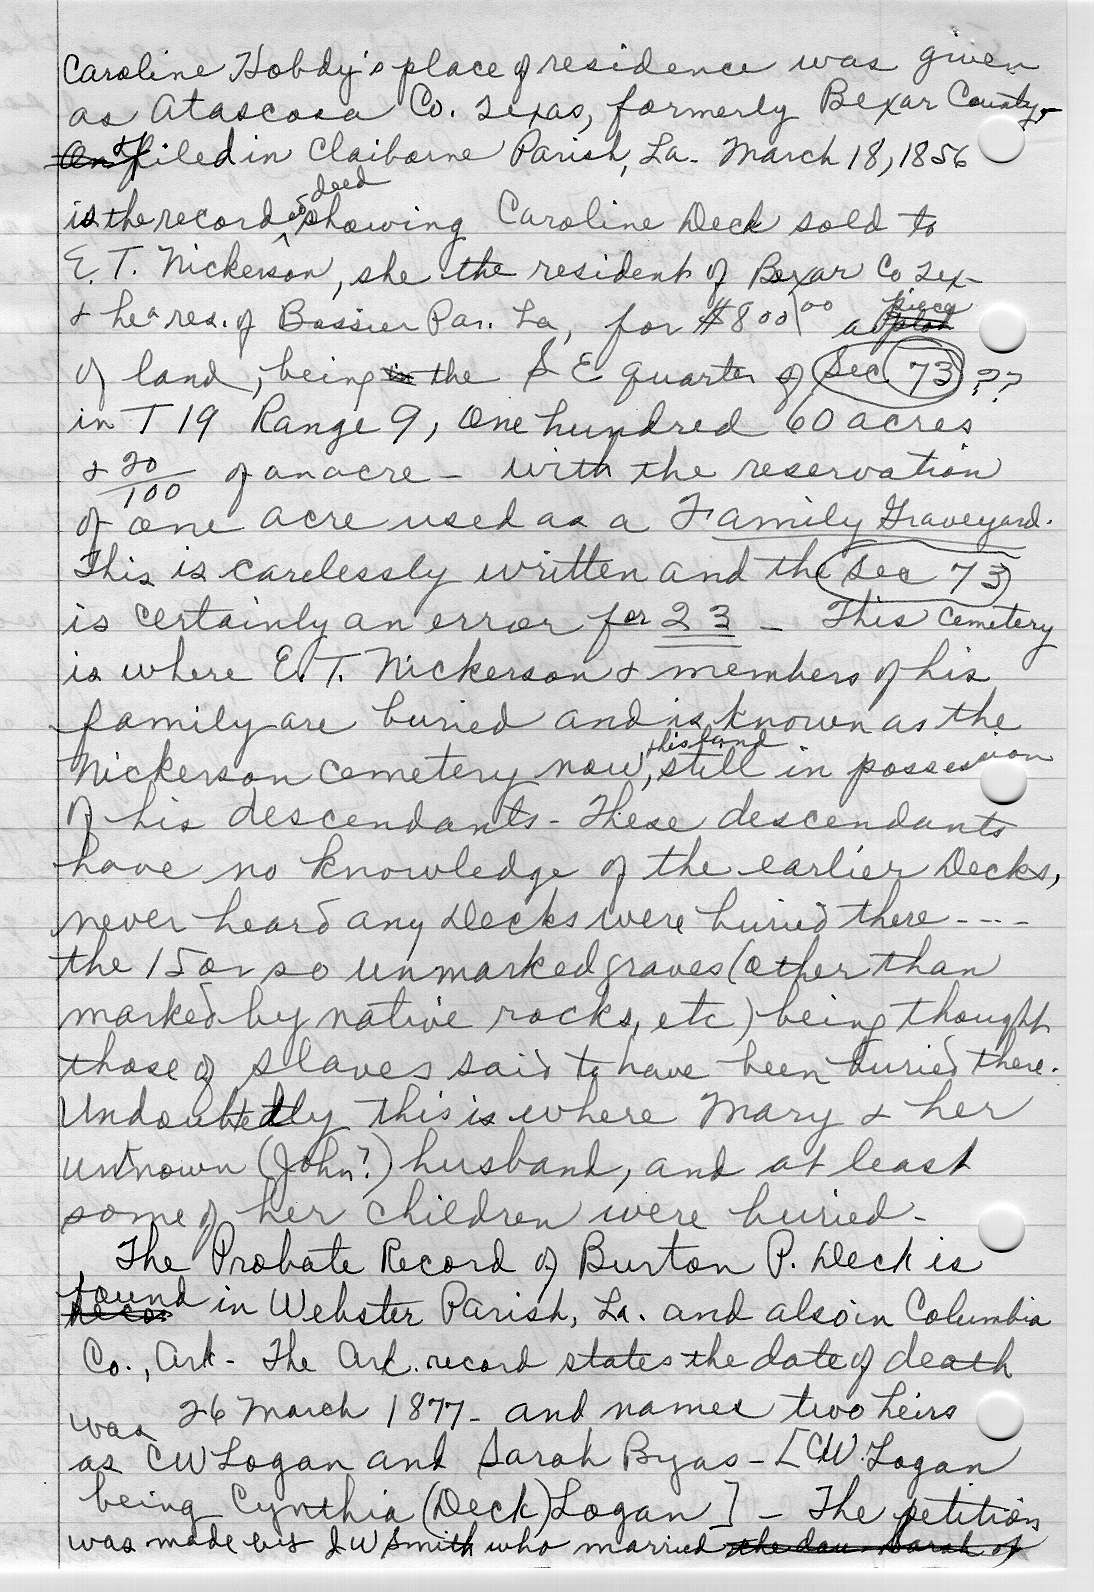 Caroline Hobdy's place of residence was given
as Atascosa Co. Texas, formerly Bexar County,
On & filed in Claiborne Parish, La. March 18, 1856
deed
is the record showing Caroline Deck sold to
E. T. Nickerson, she the resident of Bexar Co Tex-
& he a res. of Bossier Par. La, for $800.00 a piece
plot
of land, being in the S E quarter of Sec. 73 ??
in T 19 Range 9, One hundred 60 acres
& 20/100 of an acre - with the reservation
of one acre used as a Family Graveyard.
This is carelessly written and the Sec 73
is certainly an error for 23 - This cemetery
is where E. T. Nickerson & members of his
family are buried and is known as the
this land
Nickerson cemetery now, still in possession
of his descendants - These descendants
have no knowledge of the earlier Decks,
never heard any Decks were buried there ----
the 15 or so unmarked graves (other than
marked by native rocks, etc) being thought
those of slaves said to have been buried there.
Undoubtedly this is where Mary & her
unknown (John?) husband, and at least
some of her children were buried -
The Probate Record of Burton P. Deck is
found in Webster Parish, La. and also in Columbia
Co., Ark - The Ark. record states the date of death
was 26 March 1877 - and names two heirs
as CW Logan and Sarah Byas - [CW. Logan
being Cynthia (Deck) Logan] - The petition
was made by J W Smith who married the dau Sarah of